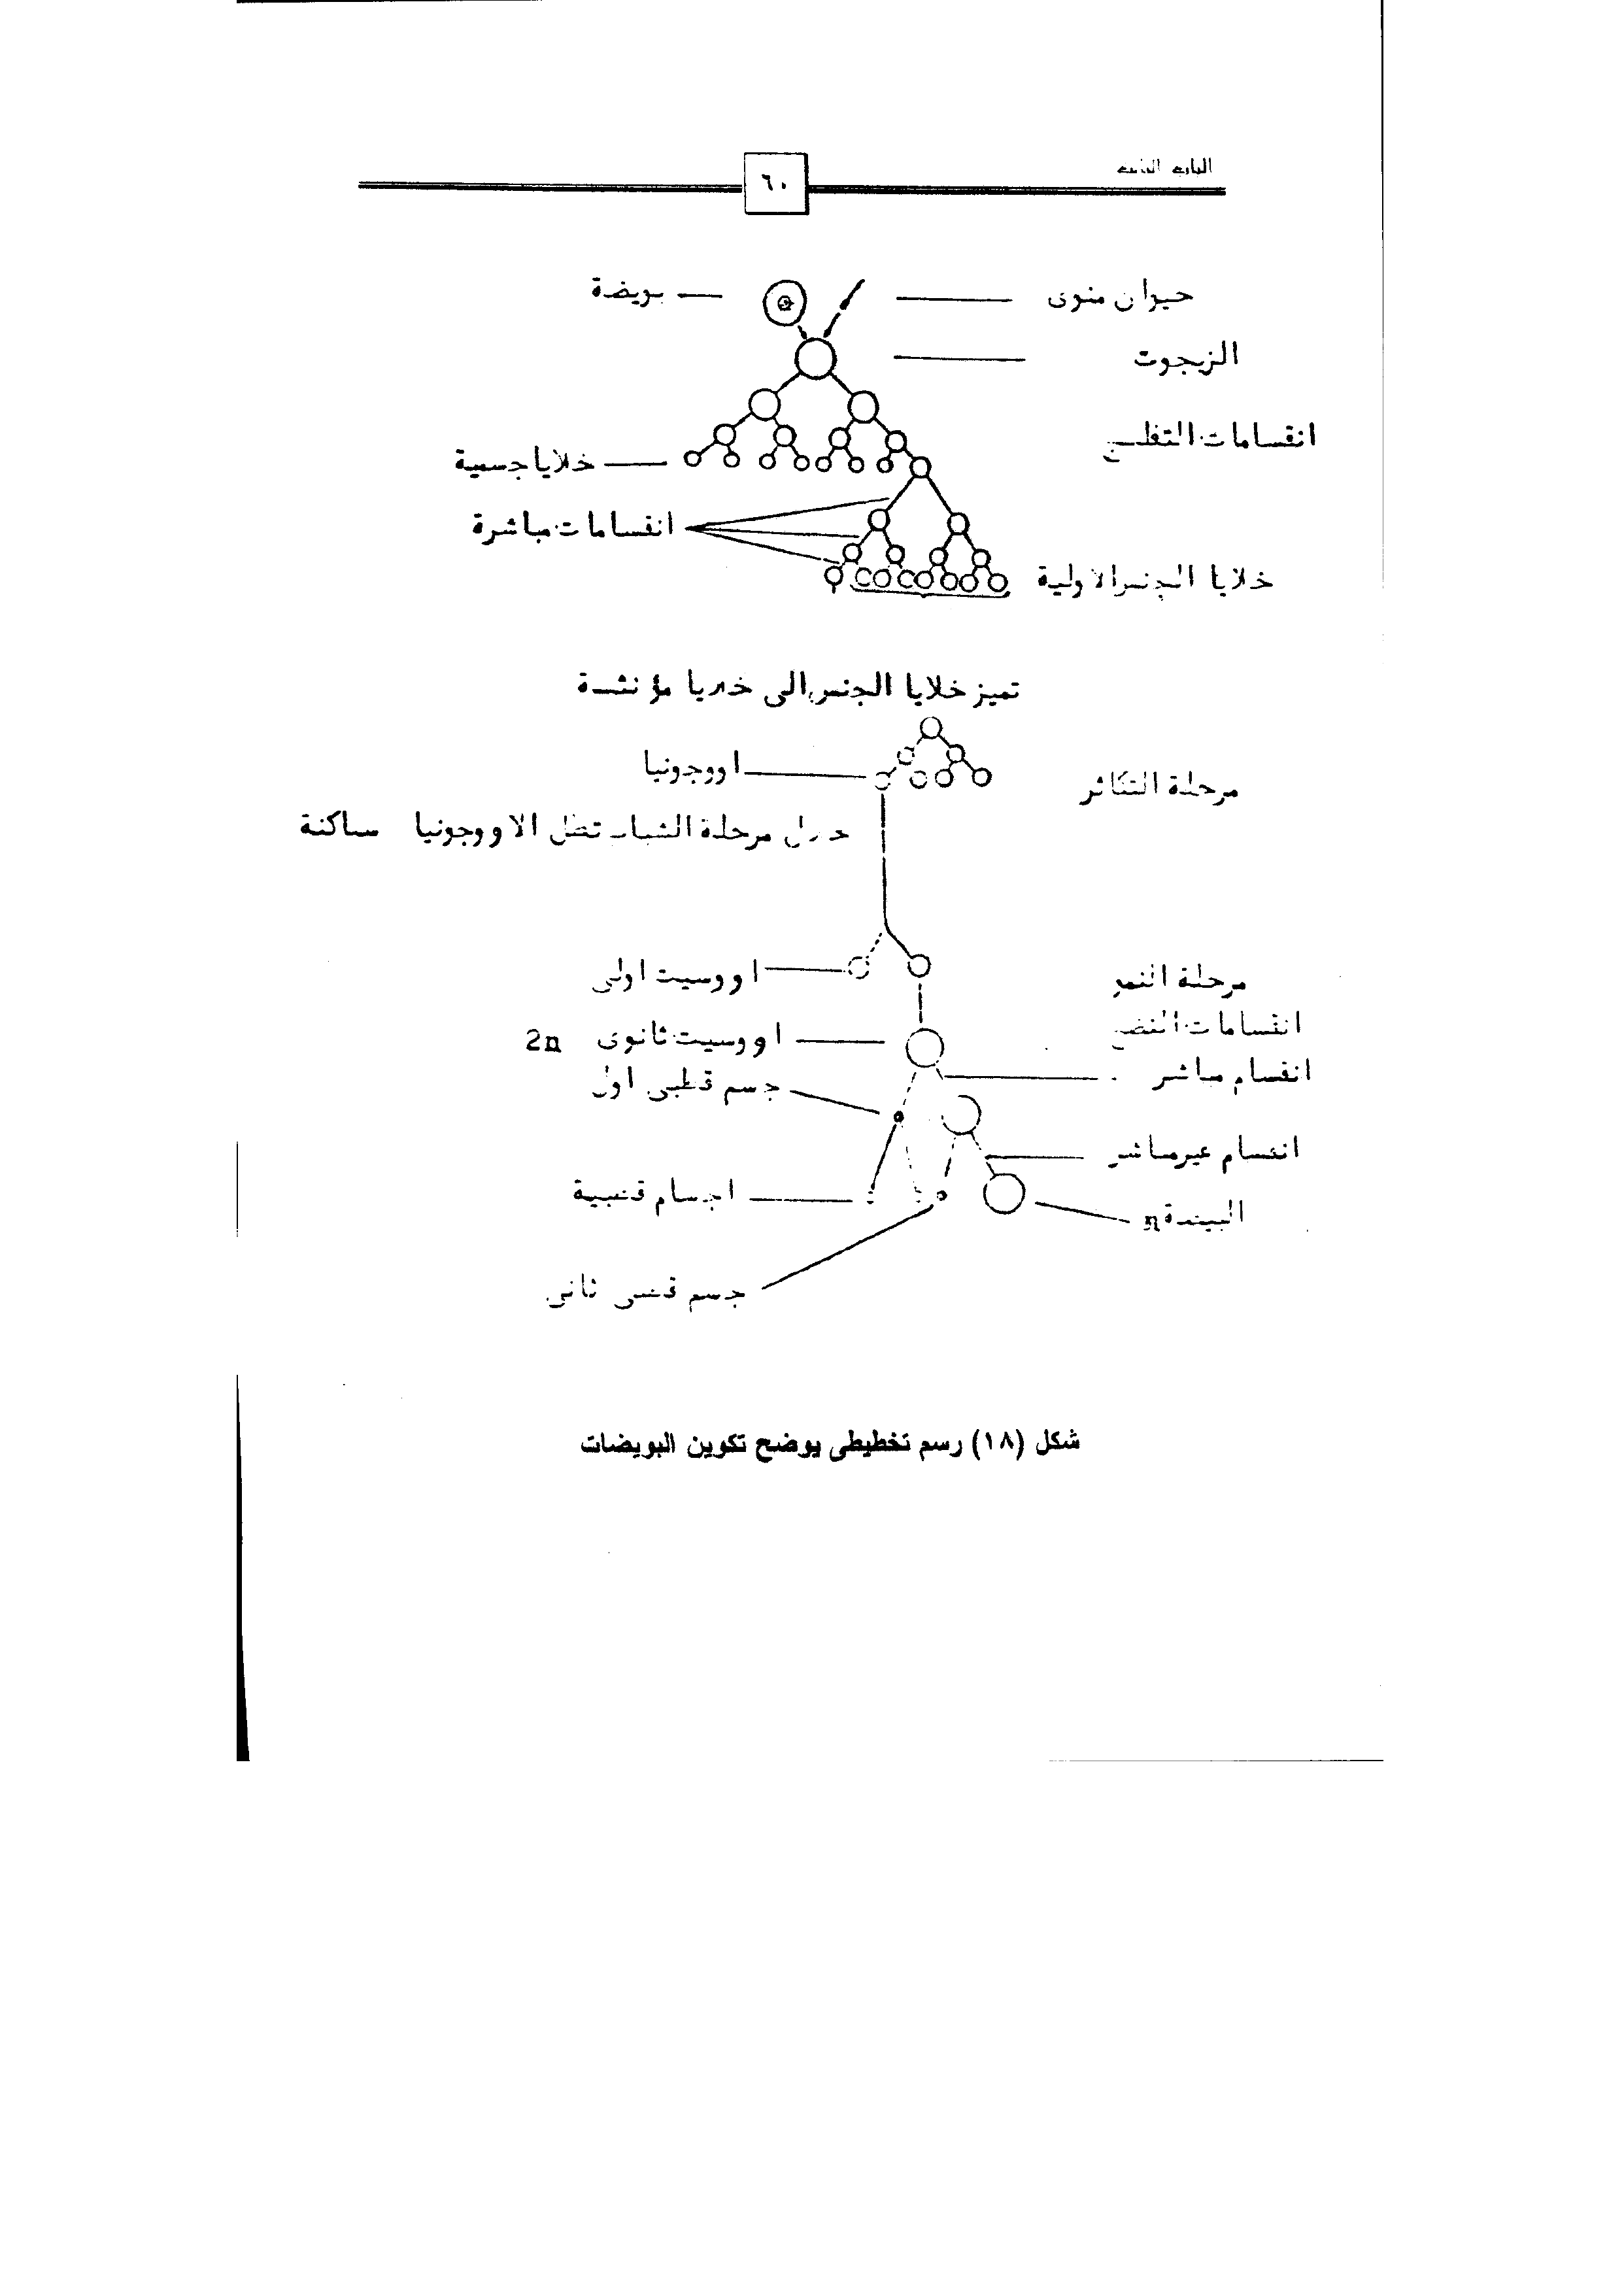 ٦٠
حيوان منوى
بويضة
الزيجوت
انقسامات التفلج
خلايا جسمية
انقسامات مباشرة
خلايا الجنس الاولية
تميز خلايا الجنس الى خلايا مؤنثة
اووجونيا
مرحلة التكاثر
خلال مرحلة الشباب تظل الاووجونيا ساكنة
اووسيت اولى
مرحلة النمو
انقسامات النضج
اووسيت ثانوى 2n
انقسام مباشر
جسم قطبى اول
انقسام غير مباشر
اجسام قطبية
البيضة n
جسم قطبى ثانى
شكل (١٨) رسم تخطيطى يوضح تكوين البويضات